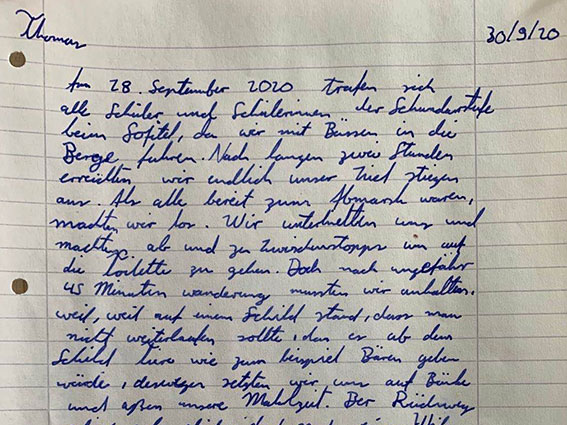 Thomas
30/9/20
Am 28. September 2020 trafen sich
alle Schüler und Schülerinnen der
beim Sofitel, da wir mit Bussen in die
Berge fuhren. Nach langen zwei Stunden
erreichten wir endlich unser Ziel stiegen
aus. Als alle bereit zum Abmarsch waren,
machten wir los. Wir unterhielten uns und
machten ab und zu Zwischenstopps um auf
die Toilette zu gehen. Doch nach ungefähr
45 Minuten wanderung mussten wir anhalten.
weil, weil auf einem Schild stand, dass man
nicht weiterlaufen sollte, da es ab dem
Schild tiere wie zum beispiel Bären geben
würde, deswegen setzten wir uns auf Bänke
und aßen unsere Mahlzeit. Der Rückweg